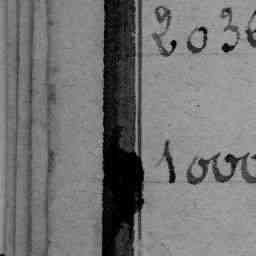 2036
1000